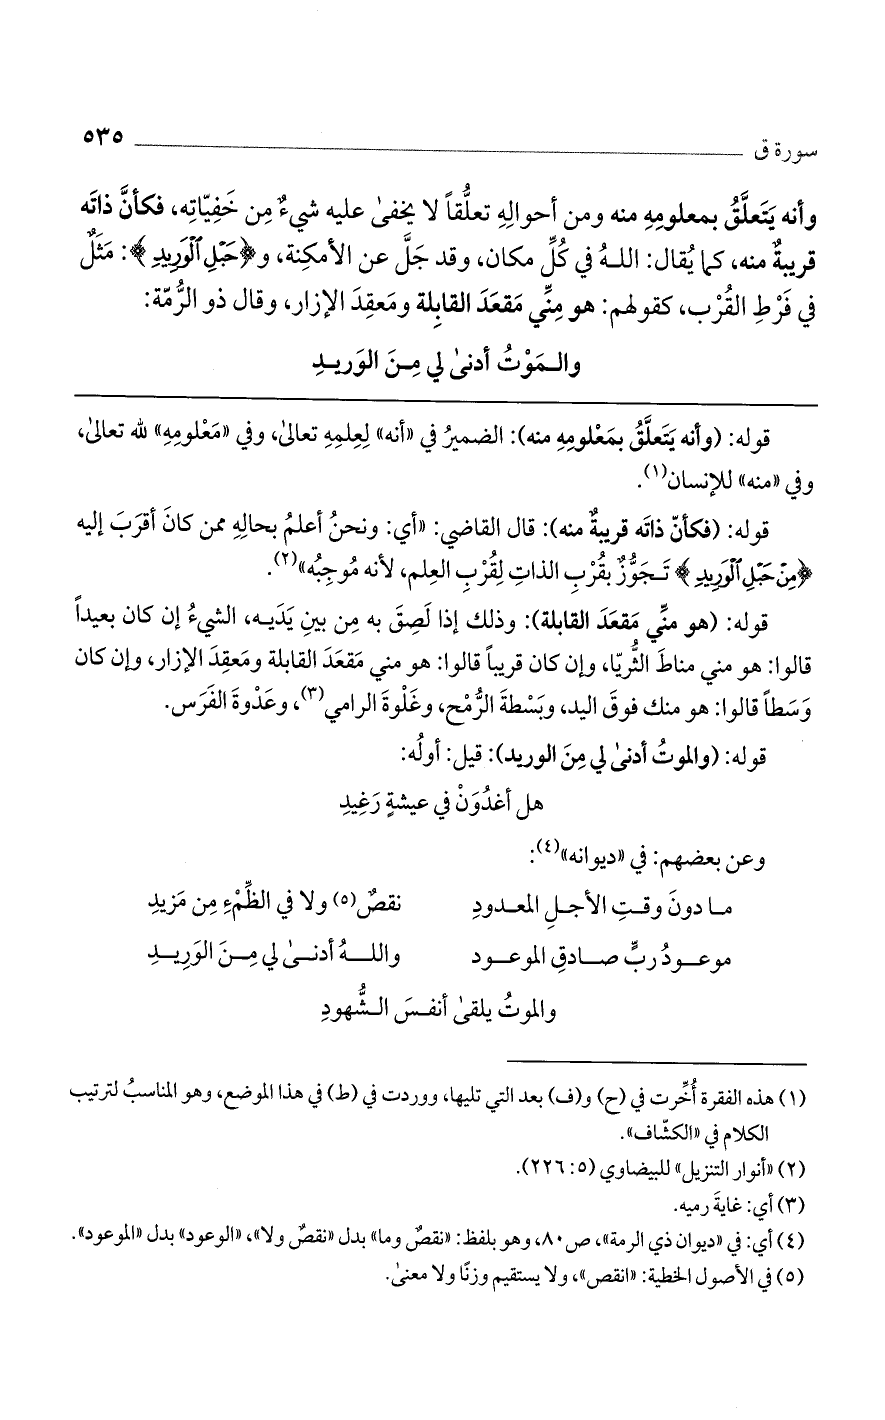 سورة ق ٥٣٥
وأنه يَتَعلَّقُ بمعلومِهِ منه ومن أحوالِهِ تعلُّقاً لا يخفىٰ عليه شيءٌ مِن خَفِيّاتِه، فكأنَّ ذاتَه
قريبةٌ منه، كما يُقال: اللهُ في كُلِّ مكان، وقد جَلَّ عن الأمكِنة، و﴿حَبْلِ ٱلْوَرِيدِ﴾: مَثَلٌ
في فَرْطِ القُرْب، كقولهم: هو مِنِّي مَقعَدَ القابِلة ومَعقِدَ الإزار، وقال ذو الرُّمّة:
والـمَوْتُ أدنىٰ لي مِـنَ الوَريـدِ
قوله: (وأنه يَتَعلَّقُ بمَعْلومِهِ منه): الضميرُ في «أنه» لِعِلمِهِ تعالىٰ، وفي «مَعْلومِهِ» لله تعالىٰ،
وفي «منه» للإنسان(١).
قوله: (فكأنّ ذاتَه قريبةٌ منه): قال القاضي: «أي: ونحنُ أعلمُ بحالِهِ ممن كانَ أقرَبَ إليه
﴿مِنْ حَبْلِ ٱلْوَرِيدِ﴾ تَـجَوُّزٌ بقُرْبِ الذاتِ لِقُرْبِ العِلم، لأنه مُوجِبُه»(٢).
قوله: (هو منِّي مَقعَدَ القابلة): وذلك إذا لَصِقَ به مِن بينِ يَدَيـه، الشيءُ إن كان بعيداً
قالوا: هو مني مناطَ الثُّريّا، وإن كان قريباً قالوا: هو مني مَقعَدَ القابلة ومَعقِدَ الإزار، وإن كان
وَسَطاً قالوا: هو منك فوقَ اليد، وبَسْطةَ الرُّمْح، وغَلْوةَ الرامي(٣)، وعَدْوةَ الفَرَس.
قوله: (والموتُ أدنىٰ لي مِنَ الوريد): قيل: أولُه:
هل أغدُوَنْ في عيشةٍ رَغِيدِ
وعن بعضهم: في «ديوانه»(٤):
مـا دونَ وقـتِ الأجـلِ المعـدودِ نقصٌ(٥) ولا في الظِّمْءِ مِن مَزيدِ
موعـودُ ربٍّ صـادقِ الموعـود واللـهُ أدنـىٰ لي مِـنَ الوَرِيـدِ
والموتُ يلقىٰ أنفـسَ الـشُّهودِ
(١) هذه الفقرة أُخِّرت في (ح) و(ف) بعد التي تليها، ووردت في (ط) في هذا الموضع، وهو المناسبُ لترتيب
الكلام في «الكشّاف».
(٢) «أنوار التنزيل» للبيضاوي (٥: ٢٢٦).
(٣) أي: غايةَ رميه.
(٤) أي: في «ديوان ذي الرمة»، ص٨٠، وهو بلفظ: «نقصٌ وما» بدل «نقصٌ ولا»، «الوعود» بدل «الموعود».
(٥) في الأصول الخطية: «انقص»، ولا يستقيم وزنًا ولا معنىٰ.